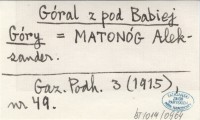 Góral z pod Babiej
Góry = MATONÓG Alek-
sander.
Gaz. Podh. 3 (1915)
nr 49.